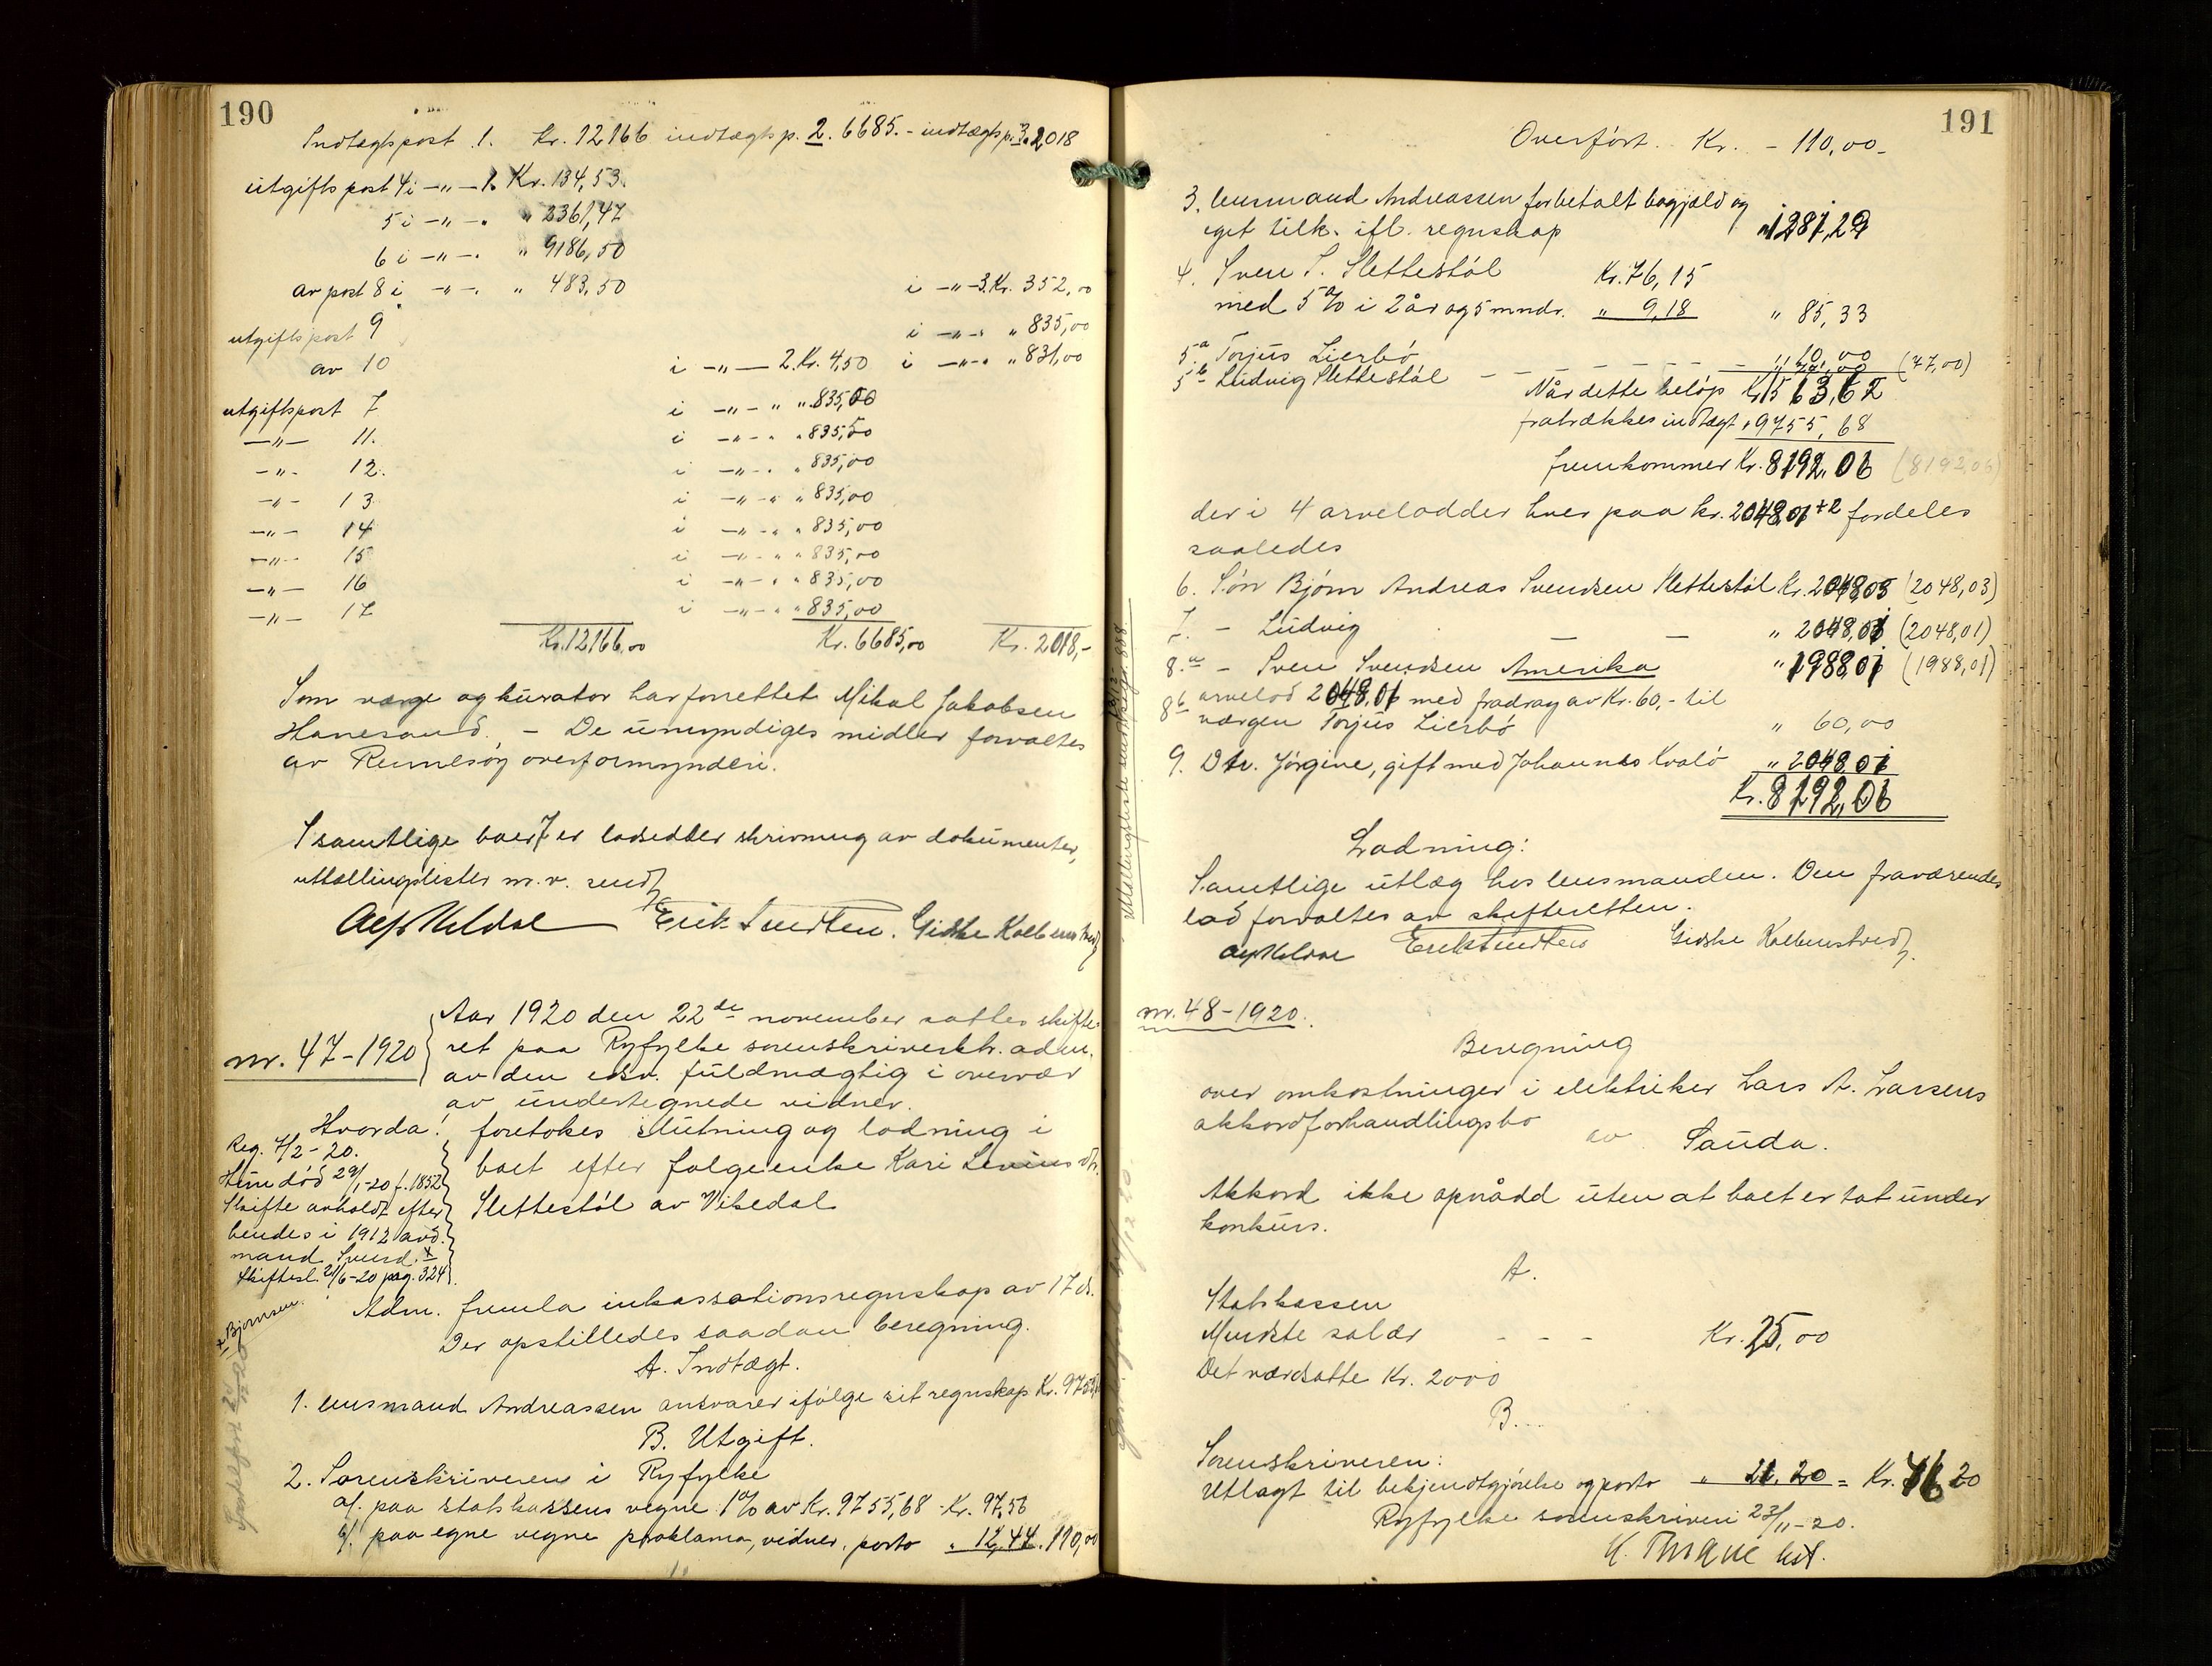 190
Indtægtspost 1. Kr. 12166 indtægtsp. 2. 6685.- indtægtsp. 3. 2018
utgiftspost 4 i -"- 1. Kr. 134,53
5 i -"- " 2361,47
6 i -"- " 9186,50
av post 8 i -"- " 483,50 i -"- 3. Kr. 352,00
utgiftspost 9 i -"- " 835,00
av 10 i -"- 2. Kr. 4,50 i -"- " 831,00
utgiftspost 7 i -"- " 835,00
-"- 11. i -"- " 835,50
-"- 12. i -"- " 835,00
-"- 13 i -"- " 835,00
-"- 14 i -"- " 835,00
-"- 15 i -"- " 835,00
-"- 16 i -"- " 835,00
-"- 17 i -"- " 835,00
Kr. 12166,00 Kr. 6685,00 Kr. 2018,-
Som værge og kurator har forrettet Mikal Jakobsen
Hanesand. - De umyndiges midler forvaltes
av Rennesøy overformynderi.
I samtlige boer er lodsedler skrivning av dokumenter,
uttællingslister m.v. sendt
Erik Knudsen. Gidske Kolbenstvedt
nr. 47-1920
Aar 1920 den 22de november sattes skifte-
ret paa Ryfylke sorenskriverktr. adm.
av den edsv. fuldmægtig i overvær
av undertegnede vidner.
Hvorda! foretokes slutning og lodning i
boet efter følgeenke Kari Leviusdtr.
Slettestøl av Vikedal
Reg. 4/2-20.
Hun død 29/1-20 f. 1852
Skifte avholdt efter
hendes i 1912 avd.
mand Svend. x
Skiftesl. 21/6-20 pag. 324
x Bjørnsen.
Adm. fremla inkassationsregnskap av 17 ds.
Der opstilledes saadan beregning.
A. Indtægt.
1. lensmand Andreassen ansvarer ifølge sit regnskap Kr. 9755
B. Utgift.
2. Sorenskriveren i Ryfylke
a/. paa statskassens vegne 1% av Kr. 9755,68 - Kr. 97,56
b/. paa egne vegne proklama, vidner, porto " 12,44. 110,00
191
Overført. Kr. - 110,00-
3. lensmand Andreassen forbetalt bogjæld og
eget tilk. ifl. regnskap " 1287,29
4. Sven S. Slettestøl Kr. 76,15
med 5% i 2 år og 5 mndr. " 9,18 " 85,33
5a Torjus Lierbø - - - " 40,00
5b Ludvig Slettestøl - - - (47,00)
Når dette beløp Kr. 1563,62
fratrækkes indtægt " 9755,68
fremkommer Kr. 8192,06 (8192,06)
der i 4 arvelodder hver paa kr. 2048,01 +2 fordeles
saaledes
6. Søn Bjørn Andreas Svendsen Slettestøl Kr. 2048,03 (2048,03)
7. - Ludvig - - " 2048,01 (2048,01)
8.a - Sven Svendsen Amerika " 1988,01 (1988,01)
8b arvelod 2048,01 med fradrag av Kr. 60,- til
værgen Torjus Lierbø " 60,00
9. Dtr. Jørgine, gift med Johannes Kvalø " 2048,01
Kr. 8192,06
Lodning:
Samtlige utlæg hos lensmanden. Den fraværendes
lod forvaltes av skifteretten.
Erik Knudsen Gidske Kolbenstvedt.
nr. 48-1920.
Beregning
over omkostninger i elektriker Lars A. Larsens
akkordforhandlingsbo av Sauda.
Akkord ikke opnådd uten at boet er tat under
konkurs.
A.
Statskassen
Mindste salær - - - Kr. 25,00
Det værdsatte Kr. 2000
B.
Sorenskriveren:
Utlagt til bekjendtgjørelse og porto " 21,20 = Kr. 46,20
Ryfylke sorenskriveri 23/11-20.